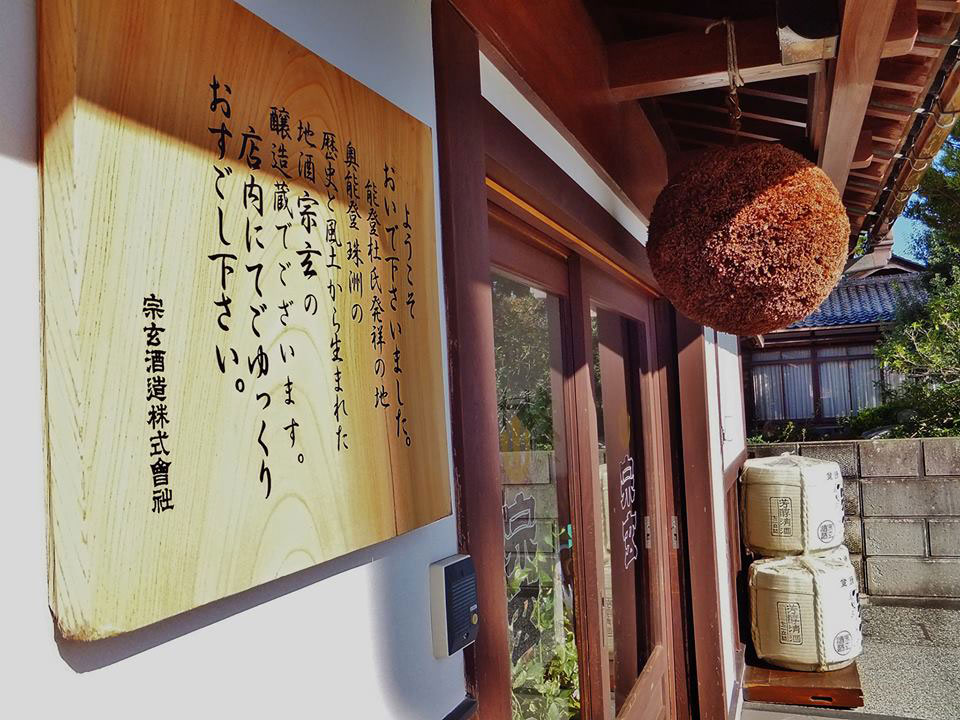 ようこそ
おいで下さいました。
能登杜氏発祥の地
奥能登 珠洲の
歴史と風土から生まれた
地酒 宗玄の
醸造蔵でございます。
店内にてごゆっくり
おすごし下さい。
宗玄酒造株式會社
宗玄
宗玄
芳醇清酒
芳醇清酒